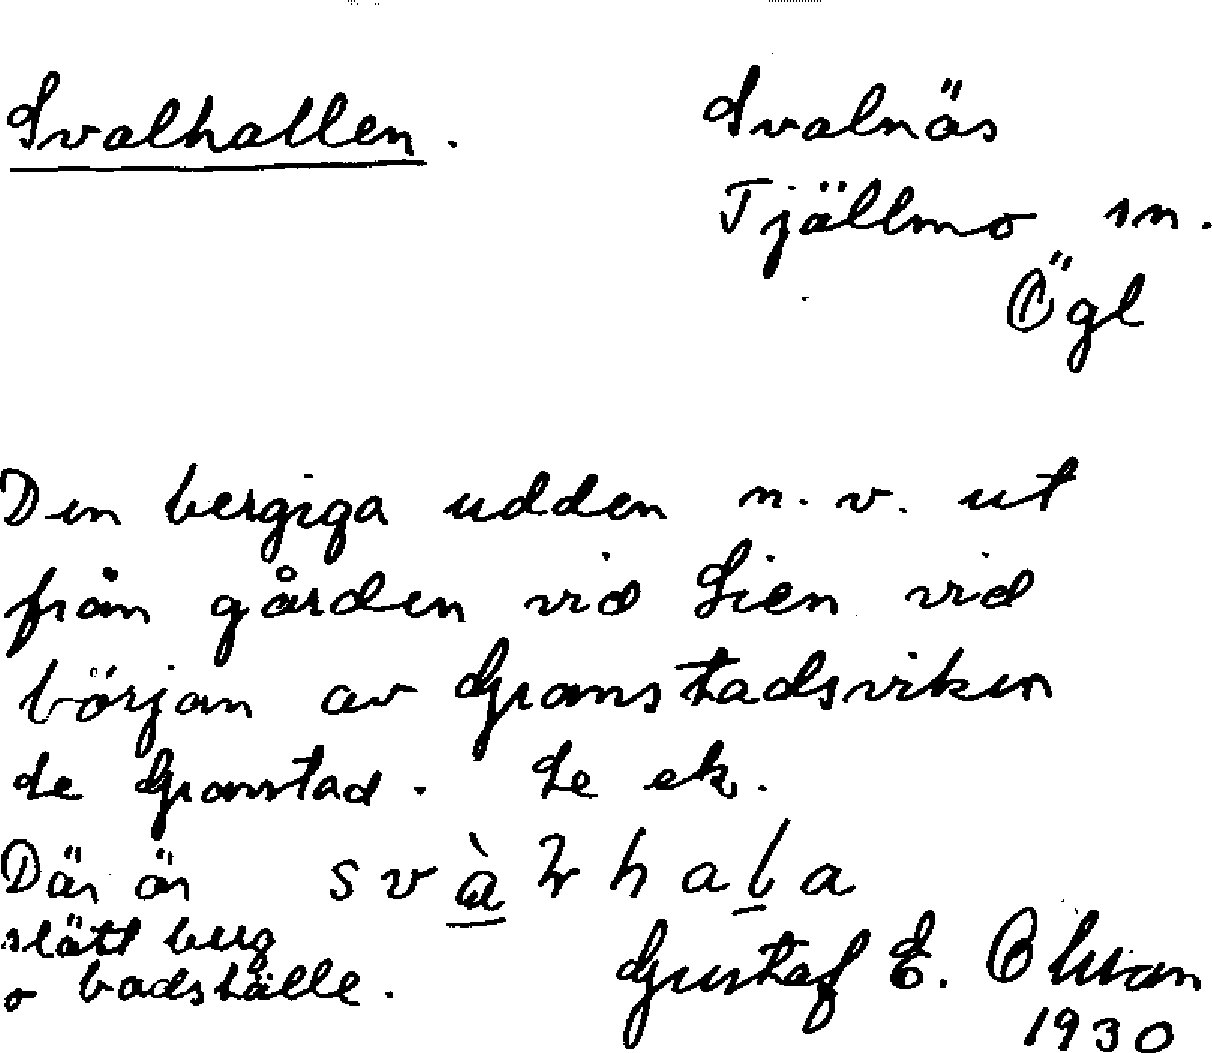 Svalhallen.
Svalnäs
Tjällmo sn.
Ögl
Den bergiga udden n.v. ut
från gården vid Sien vid
början av Granstadsviken
se Granstad. Se ek.
Där är
slätt berg
o badställe.
Gustaf E. Olsson
1930